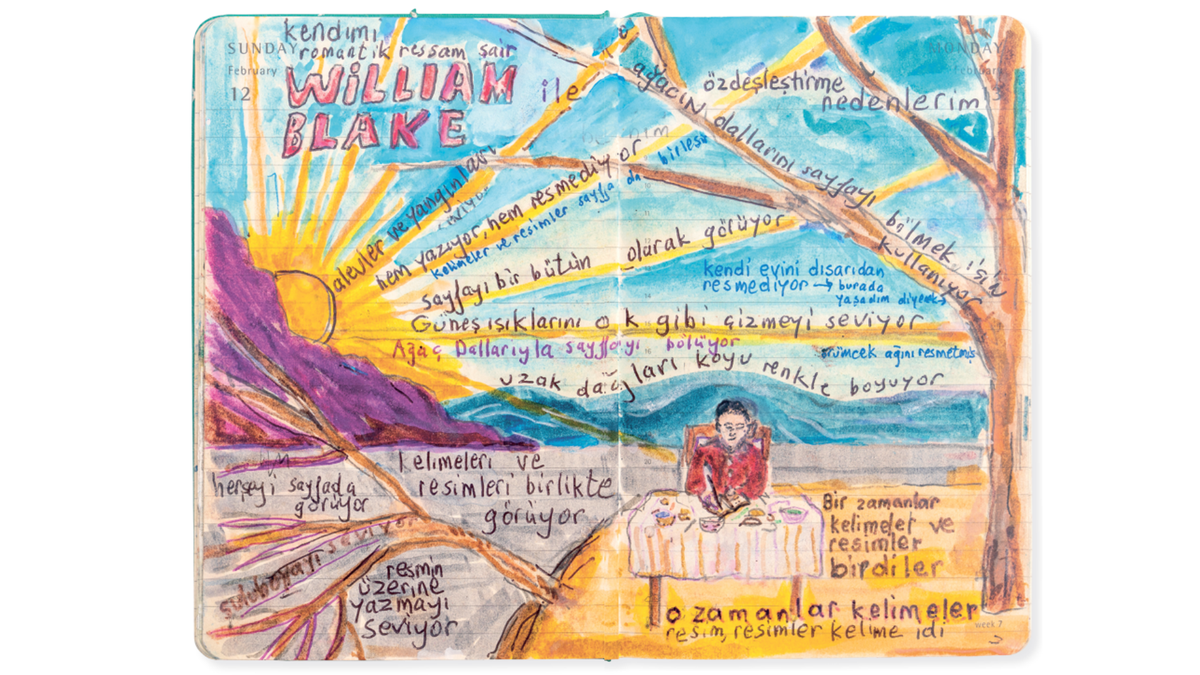 kendimi
SUNDAY
romantik ressam şair
February
WİLLİAM
12
BLAKE
ile
MONDAY
February
özdeşleştirme
nedenlerim
ağacın dallarını sayfayı bölmek için
kullanıyor
alevler ve yangınları
seviyor
hem yazıyor, hem resmediyor
kelimeler ve resimler sayfa da birleşir
sayfayı bir bütün olarak görüyor
kendi evini dışarıdan
resmediyor → burada
yaşadım diyerek
Güneş ışıklarını ok gibi çizmeyi seviyor
Ağaç Dallarıyla sayfayı bölüyor
örümcek ağını resmetmiş
uzak dağları, koyu renkle boyuyor
herşeyi sayfada
görüyor
kelimeleri ve
resimleri birlikte
görüyor
suluboyayı seviyor
resmin
üzerine
yazmayı
seviyor
Bir zamanlar
kelimeler ve
resimler
birdiler
o zamanlar kelimeler
resim, resimler kelime idi
Week 7